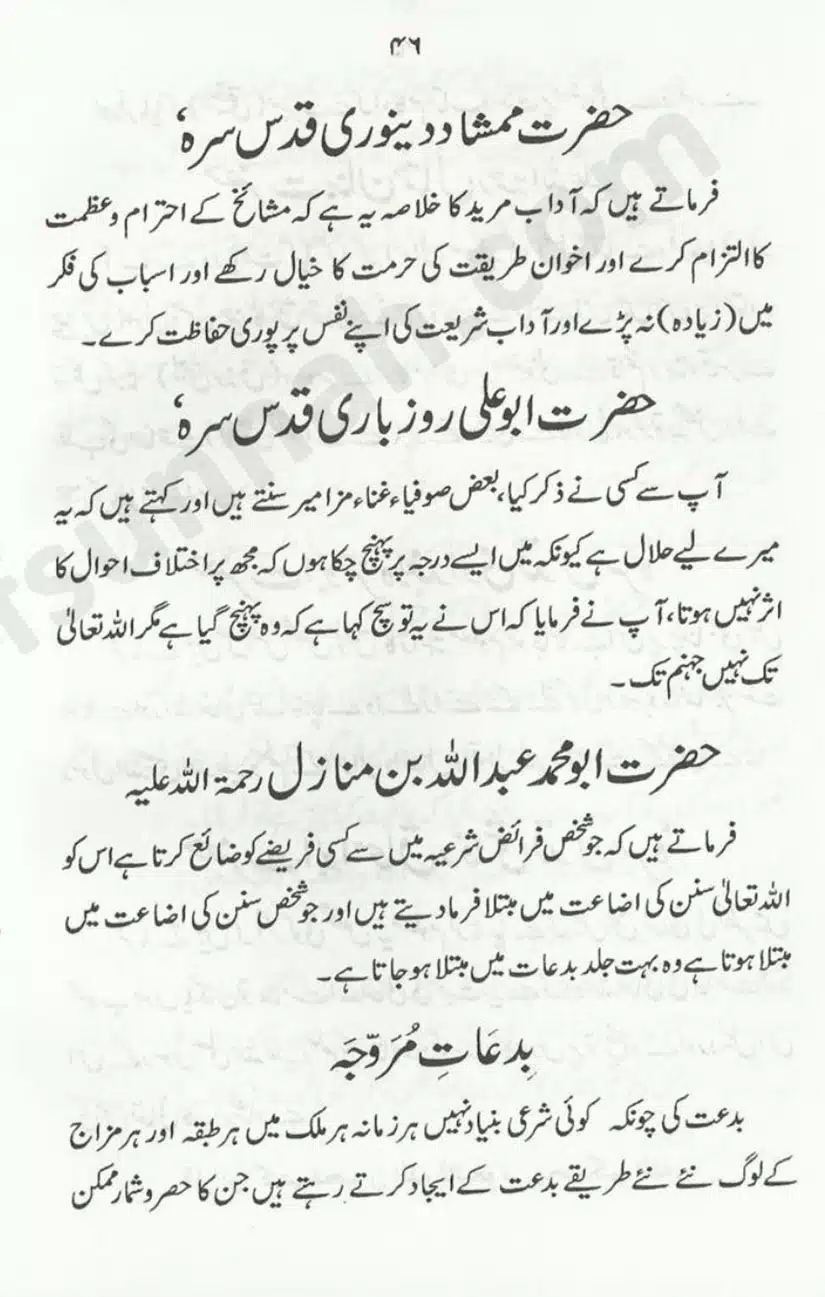 ۴۶
حضرت ممشاد دینوری قدس سرہ‘
فرماتے ہیں کہ آداب مرید کا خلاصہ یہ ہے کہ مشائخ کے احترام و عظمت
کا التزام کرے اور اخوان طریقت کی حرمت کا خیال رکھے اور اسباب کی فکر
میں (زیادہ) نہ پڑے اور آداب شریعت کی اپنے نفس پر پوری حفاظت کرے۔
حضرت ابو علی روز باری قدس سرہ‘
آپ سے کسی نے ذکر کیا، بعض صوفیاء غناء مزامیر سنتے ہیں اور کہتے ہیں کہ یہ
میرے لیے حلال ہے کیونکہ میں ایسے درجہ پر پہنچ چکا ہوں کہ مجھ پر اختلاف احوال کا
اثر نہیں ہوتا، آپ نے فرمایا کہ اس نے یہ تو سچ کہا ہے کہ وہ پہنچ گیا ہے مگر اللہ تعالیٰ
تک نہیں جہنم تک۔
حضرت ابو محمد عبد اللہ بن منازل رحمۃ اللہ علیہ
فرماتے ہیں کہ جو شخص فرائض شرعیہ میں سے کسی فریضے کو ضائع کرتا ہے اس کو
اللہ تعالیٰ سنن کی اضاعت میں مبتلا فرما دیتے ہیں اور جو شخص سنن کی اضاعت میں
مبتلا ہوتا ہے وہ بہت جلد بدعات میں مبتلا ہو جاتا ہے۔
بِدعَاتِ مُرَوّجَہ
بدعت کی چونکہ کوئی شرعی بنیاد نہیں ہر زمانہ ہر ملک میں ہر طبقہ اور ہر مزاج
کے لوگ نئے نئے طریقے بدعت کے ایجاد کرتے رہتے ہیں جن کا حصر و شمار ممکن